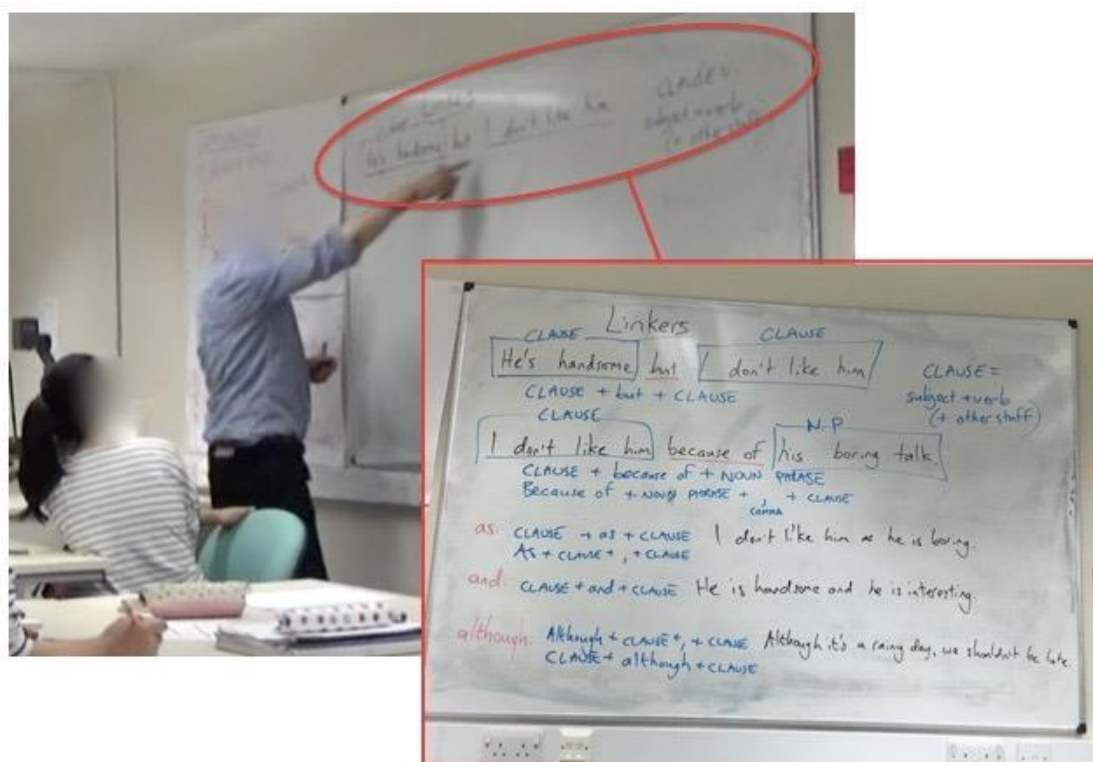 CLAUSE
He's handsome but I don't like him
CLAUSE =
subject + verb
(+ other stuff)
Linkers
CLAUSE CLAUSE
He's handsome but I don't like him
CLAUSE + but + CLAUSE
CLAUSE =
subject + verb
(+ other stuff)
CLAUSE N.P
I don't like him because of his boring talk.
CLAUSE + because of + NOUN PHRASE
Because of + NOUN PHRASE + , + CLAUSE
COMMA
as: CLAUSE + as + CLAUSE I don't like him as he is boring.
As + CLAUSE + , + CLAUSE
and: CLAUSE + and + CLAUSE He is handsome and he is interesting.
although: Although + CLAUSE + , + CLAUSE Although it's a rainy day, we shouldn't be late
CLAUSE + although + CLAUSE